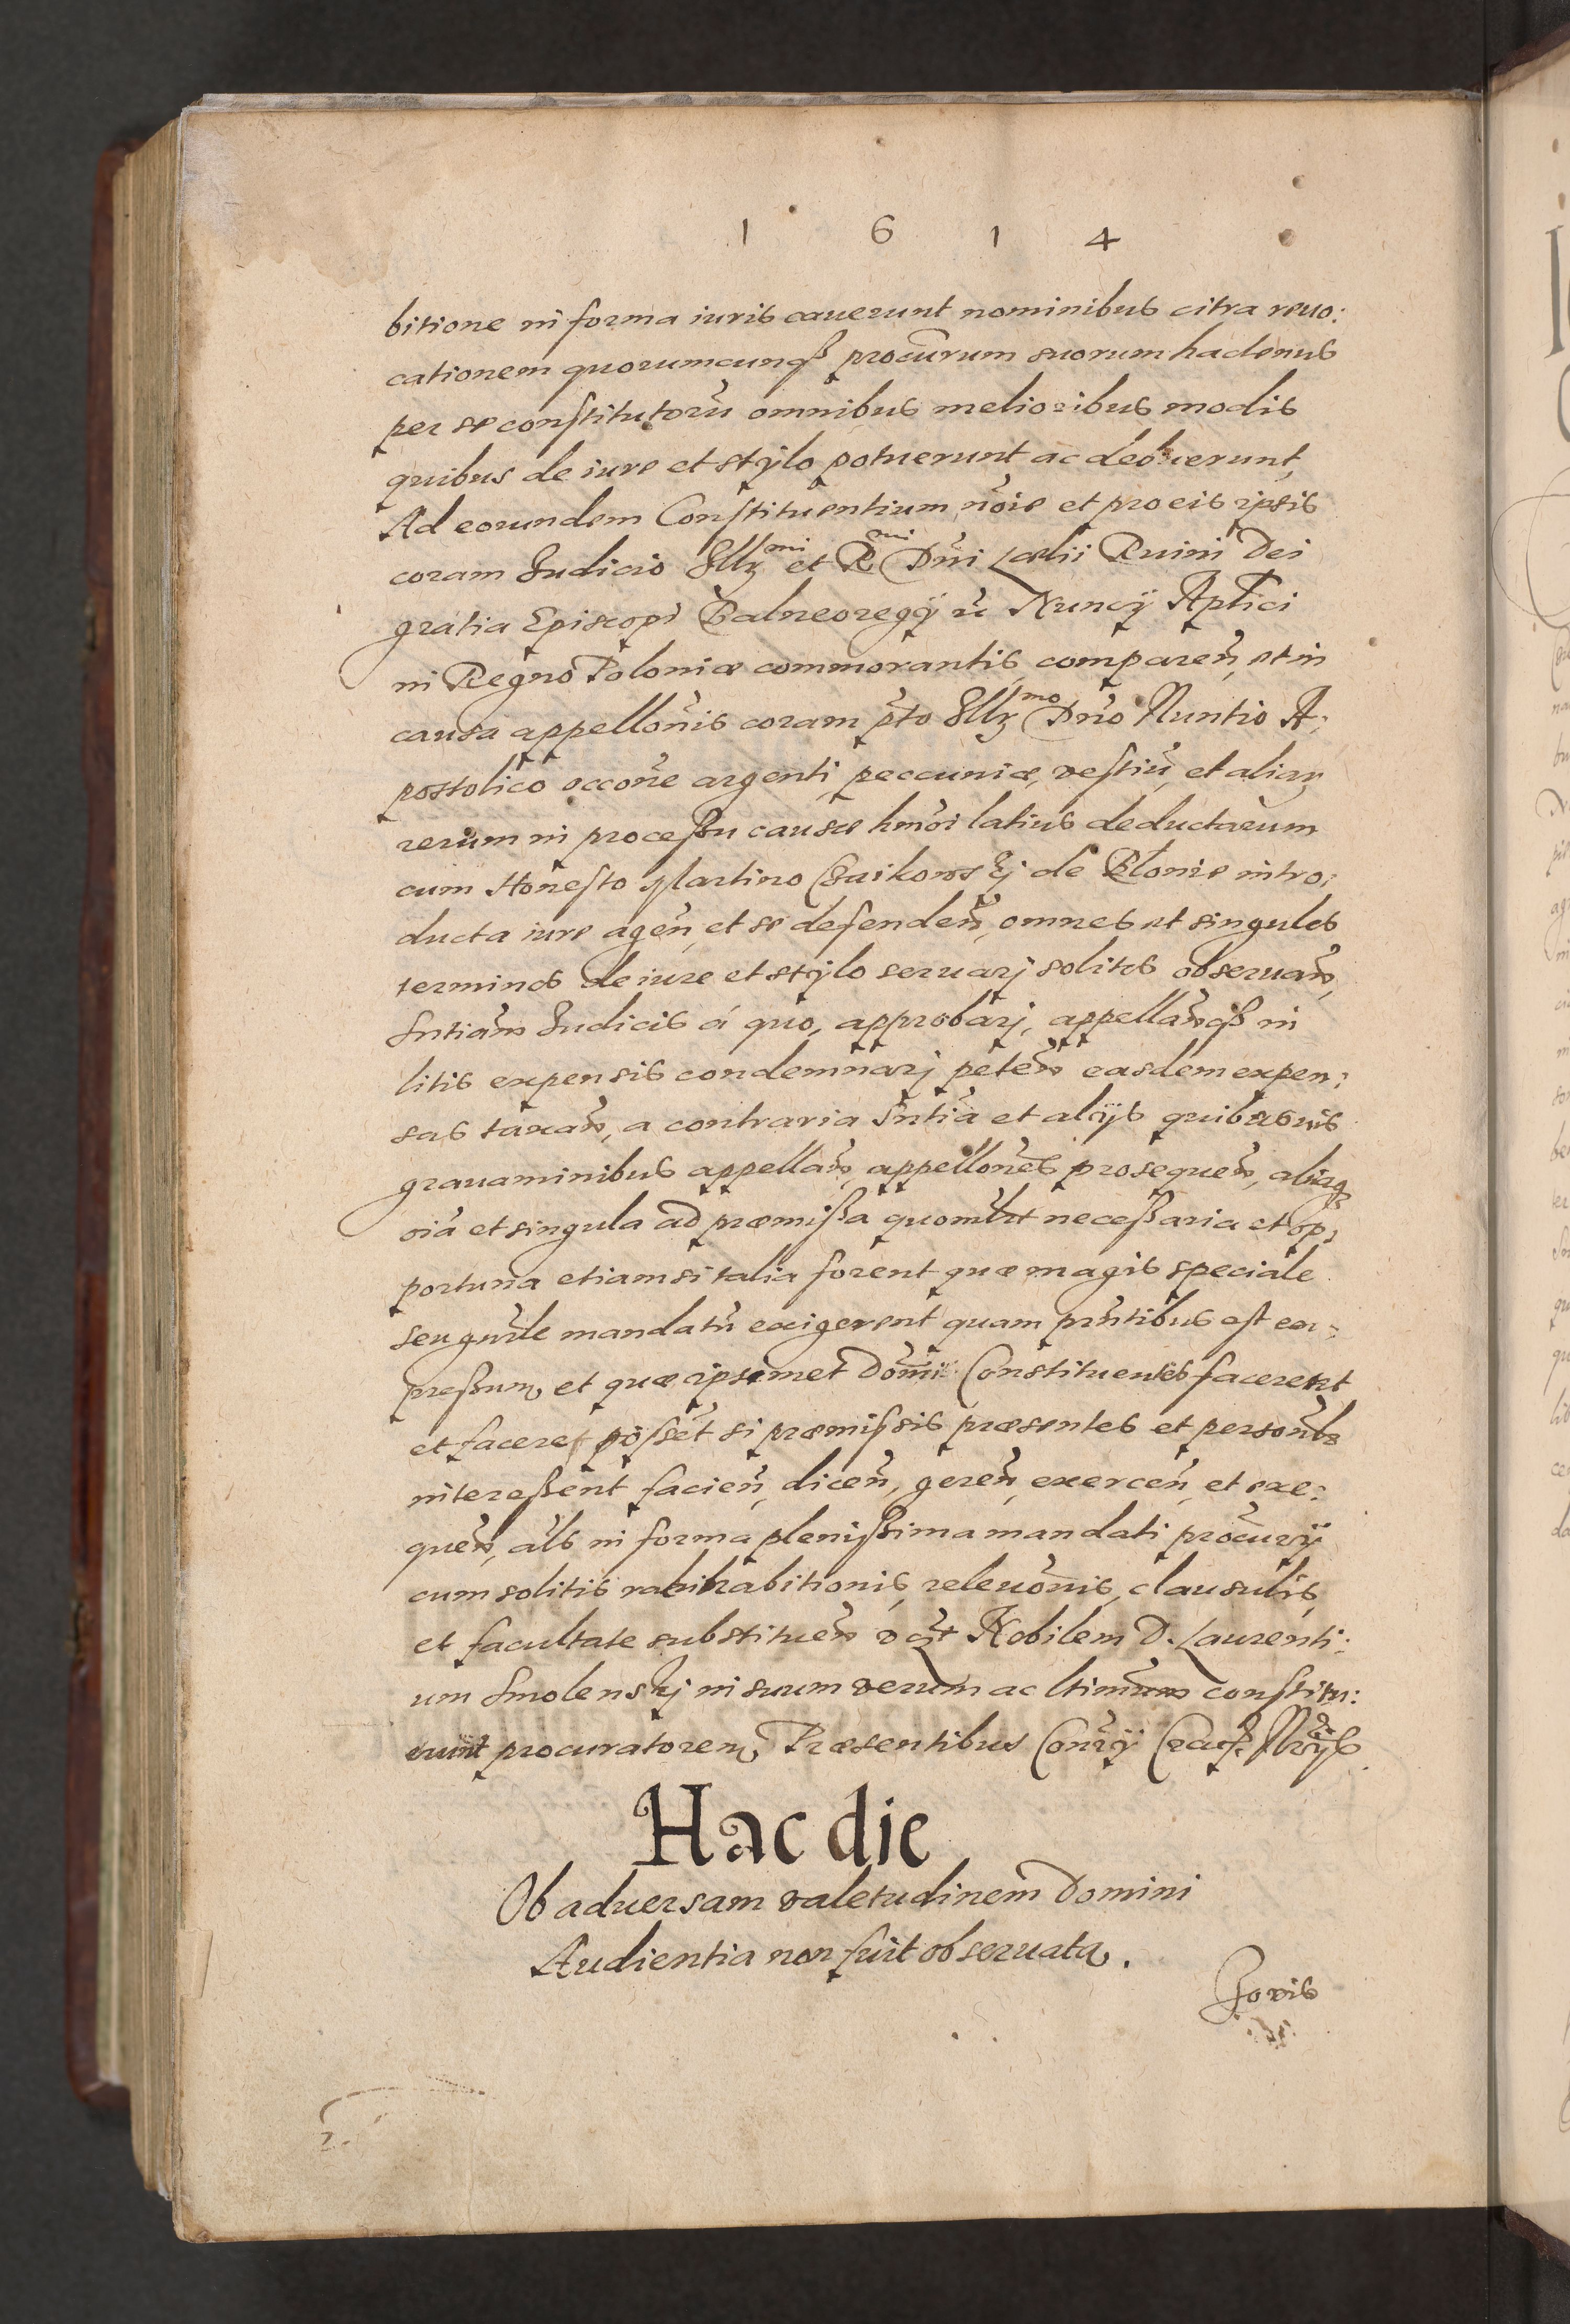 1 6 1 4
bitione in forma iuris cauerunt nominibus citra reuo:
cationem quorumcunqꝫ procūrum suorum hactenus
per se constitutorū omnibus melioribus modis
quibus de iure et stylo potuerunt ac debuerunt,
Ad eorundem Constituentium nōie et pro eis ipsis
coram Iudicio Illr^mi et R^mi Dn̄i Lælii Ruini Dei
gratia Episcopi Balneoregij ac Nuncij Aplīci
in Regno Poloniæ commorantis, comparen̄, et in
causa appellōnis coram p̄to Illr^mo Dn̄o Nuntio A:
postolico occōne argenti, peccuniæ, vestiū, et aliarꝫ
rerum in processu causæ hm̄oi latius deductarum
cum Honesto Martino de Blonie intro:
ducta iure agen̄, et se defenden̄, omnes et singulos
terminos de iure et stylo seruarj solitos obseruan̄,
Sn̄tiam Iudicis á quo, approbarj, appellan̄qꝫ in
litis expensis condemnarj peten̄ easdem expen:
sas taxan̄, a contraria Sn̄tia et alijs quibusuis
grauaminibus appellan̄, appellōnes prosequen̄, aliaqꝫ
oīa et singula ad præmissa quomōlt necessaria et op:
portuna etiamsi talia forent quæ magis speciale
seu gn̄rle mandatū exigerent quam prn̄tibus est ex:
pressum, et quæ ipsimet Domī Constituentes facerent
et facere possēt si præmissis præsentes et personlr̄
interessent facien̄, dicen̄, geren̄, exercen̄, et exe:
quen̄, als in forma plenissima mandati procurij
cum solitis ratihabitionis, releuōnis, clausulis,
et facultate substituen̄ Nobilem D. Laurenti:
um Smolenskj in suum verum ac ltimum constitu:
erunt procuratorem, Præsentibus
Hac die
Ob aduersam valetudinem Domini
Audientia non fuit obseruata.
Jovis